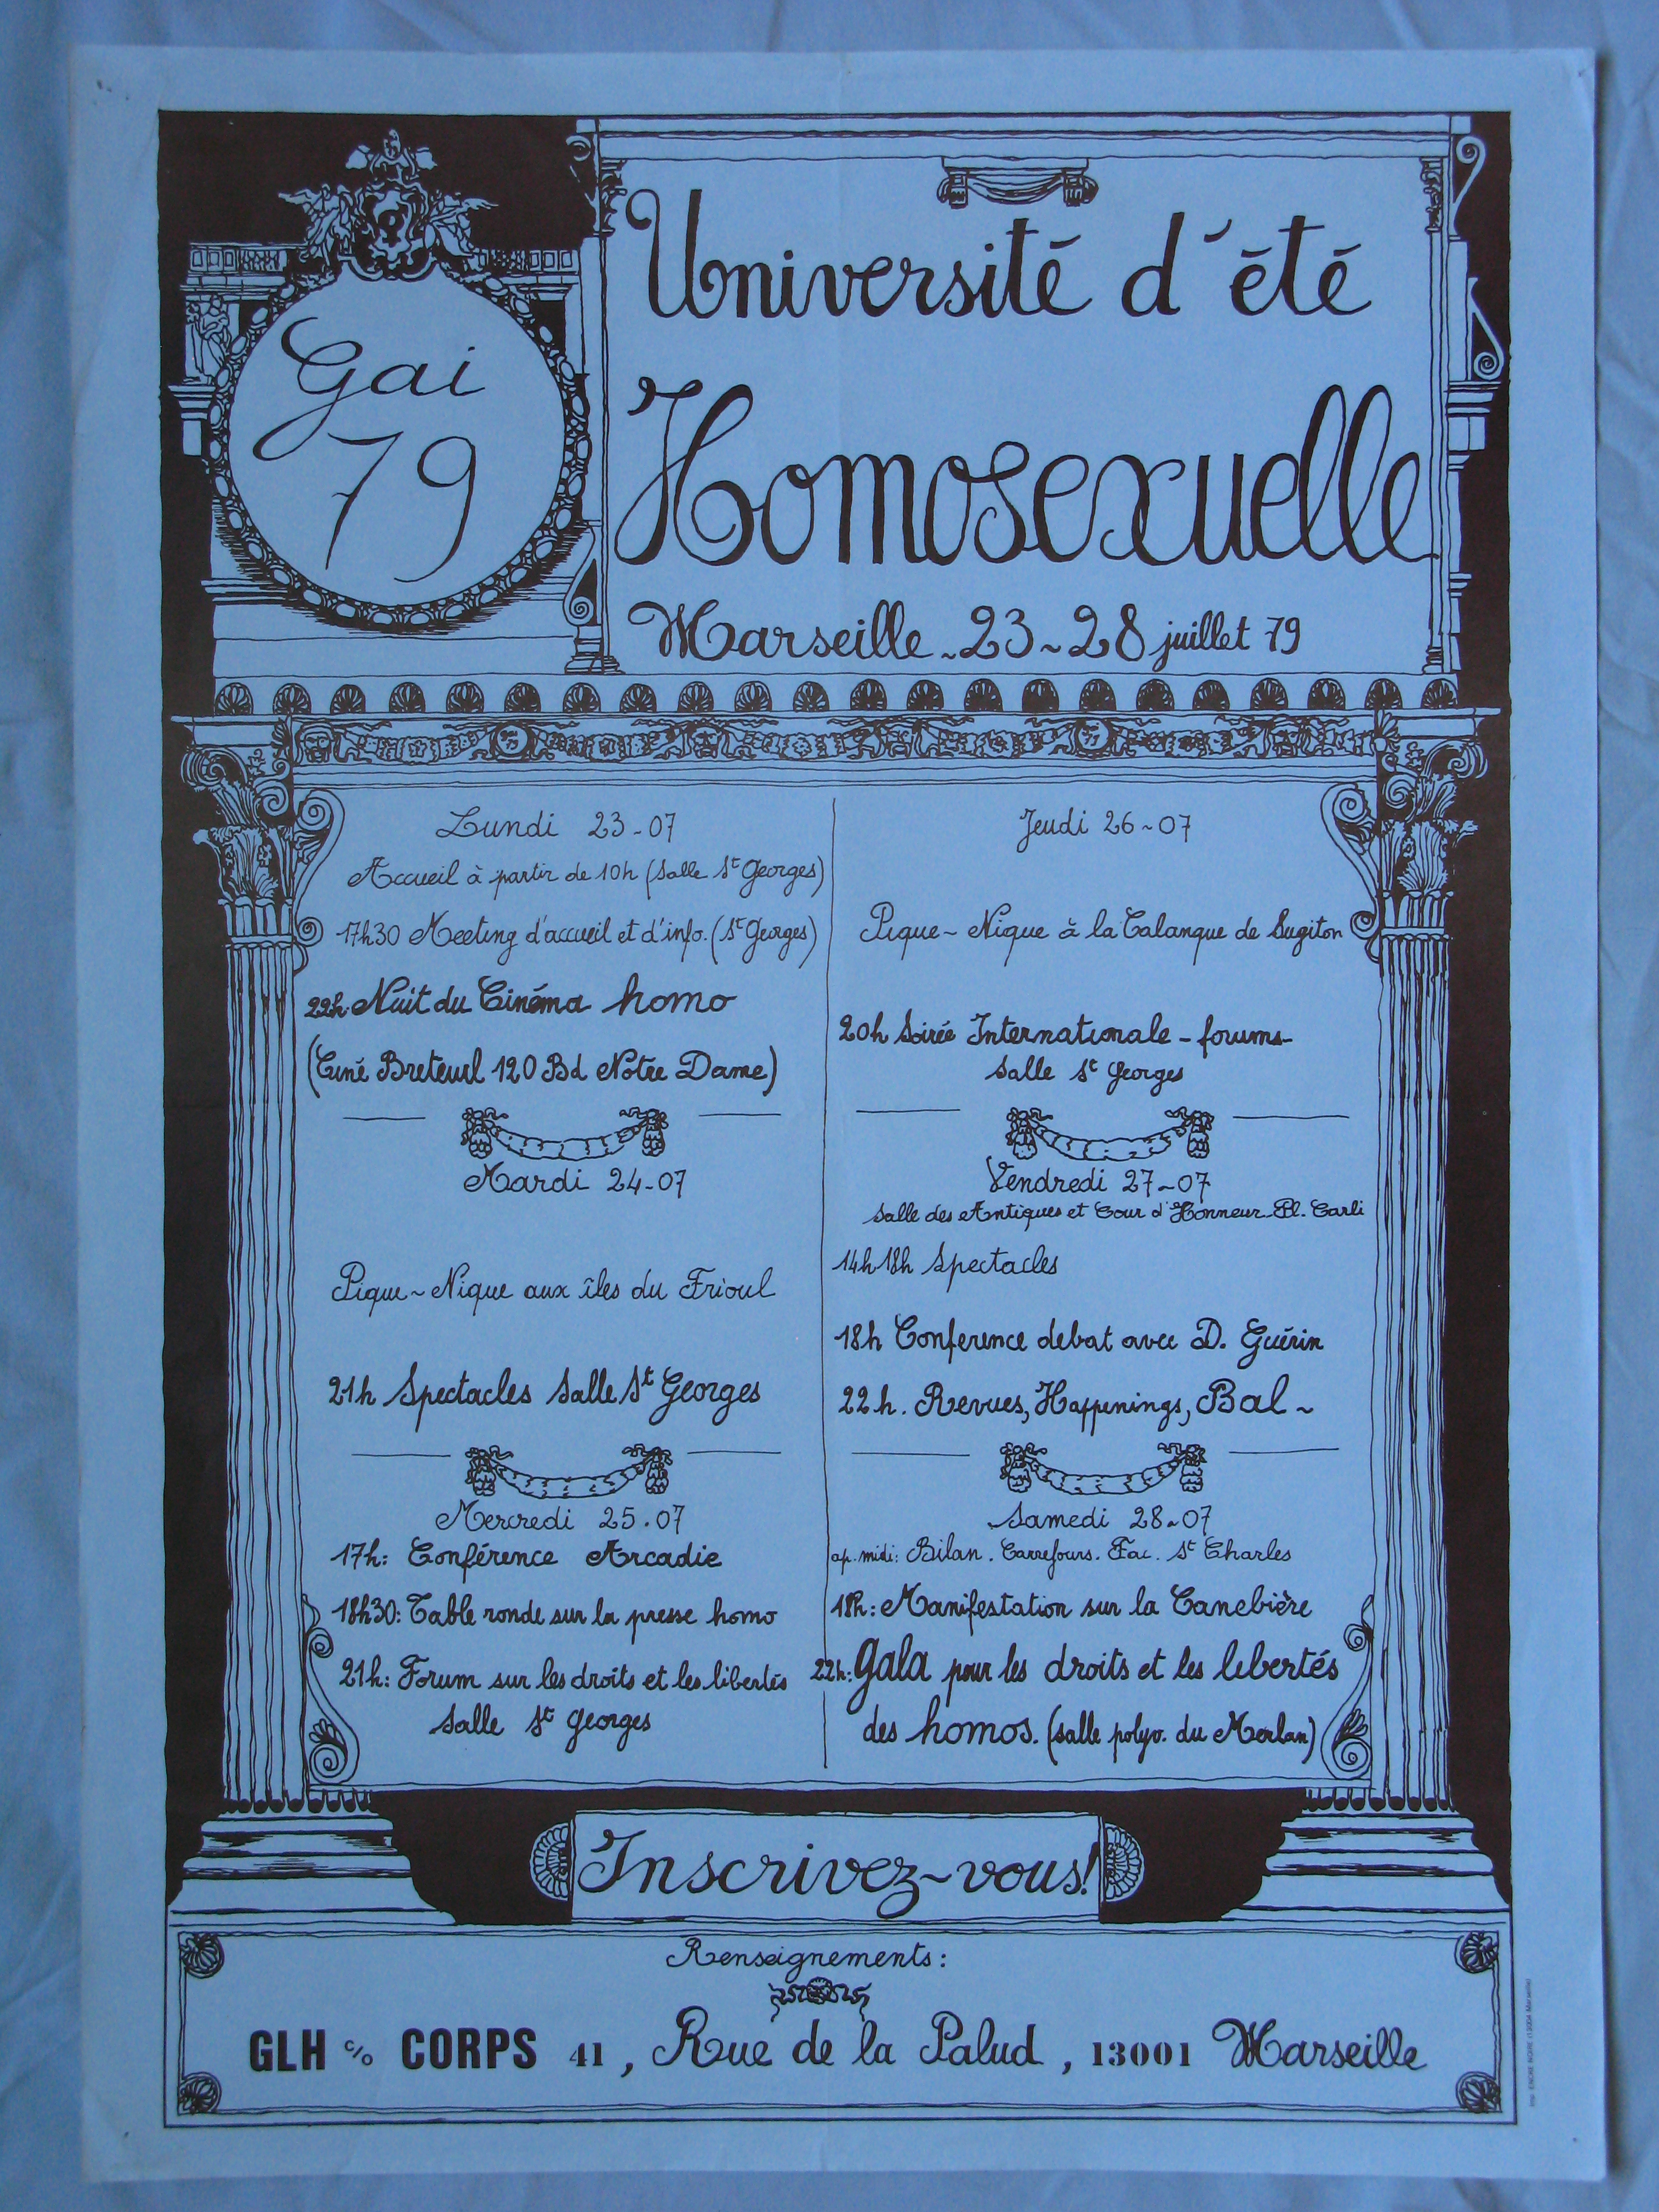 Gai
79
Université d'été
Homosexuelle
Marseille - 23 ~ 28 juillet 79
Lundi 23-07
Accueil à partir de 10h (Salle St Georges)
17h30 Meeting d'accueil et d'info. (St Georges)
22h. Nuit du Cinéma homo
(Ciné Breteuil 120 Bd Notre Dame)
Mardi 24-07
Pique~Nique aux îles du Frioul
21h Spectacles Salle St Georges
Mercredi 25.07
17h: Conférence Arcadie
18h30: Table ronde sur la presse homo
21h: Forum sur les droits et les libertés
Salle St Georges
Jeudi 26~07
Pique~Nique à la Calanque de Sugiton
20h Soirée Internationale - forums-
Salle St Georges
Vendredi 27~07
Salle des Antiques et Cour d'Honneur Pl. Carli
14h 18h Spectacles
18h Conference debat avec D. Guérin
22h. Revues, Happenings, Bal ~
Samedi 28~07
ap. midi: Bilan. Carrefours. Fac. St Charles
18h: Manifestation sur la Canebière
22h: Gala pour les droits et les libertés
des homos. (salle polyv. du Merlan)
Inscrivez~vous!
Renseignements:
GLH c/o CORPS 41, Rue de la Palud, 13001 Marseille
Imp. ENCRE NOIRE (13004 Marseille)